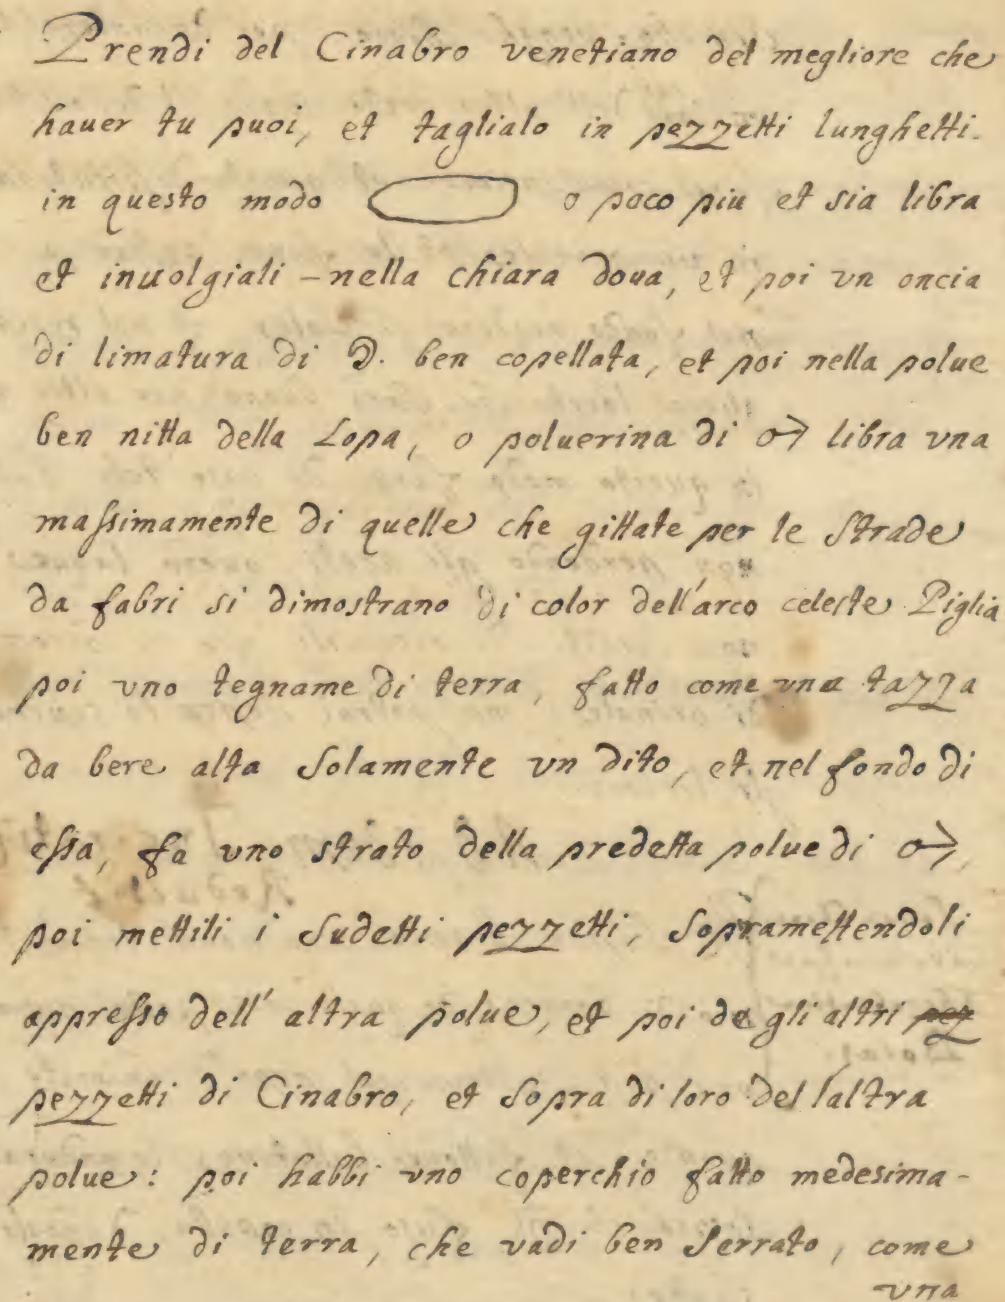 Prendi del Cinabro venetiano del megliore che
hauer tu puoi, et taglialo in pezzetti lunghetti.
in questo modo o poco piu et sia libra
et inuolgiali – nella chiara doua, et poi vn oncia
di limatura di ☽. ben copellata, et poi nella polue
ben nitta della Lopa, o poluerina di ♂ libra vna
maſsimamente di quelle che gittate per le strade
da fabri si dimostrano di color dell'arco celeste Piglia
poi vno tegname di terra, fatto come vna tazza
da bere alta solamente vn dito, et nel fondo di
eſsa, fa vno strato della predetta polue di ♂,
poi mettili i sudetti pezzetti, sopramettendoli
appreſso dell' altra polue, et poi de gli altri pez
pezzetti di Cinabro, et sopra di loro del l'altra
polue: poi habbi vno coperchio fatto medesima-
mente di terra, che vadi ben serrato, come
vna